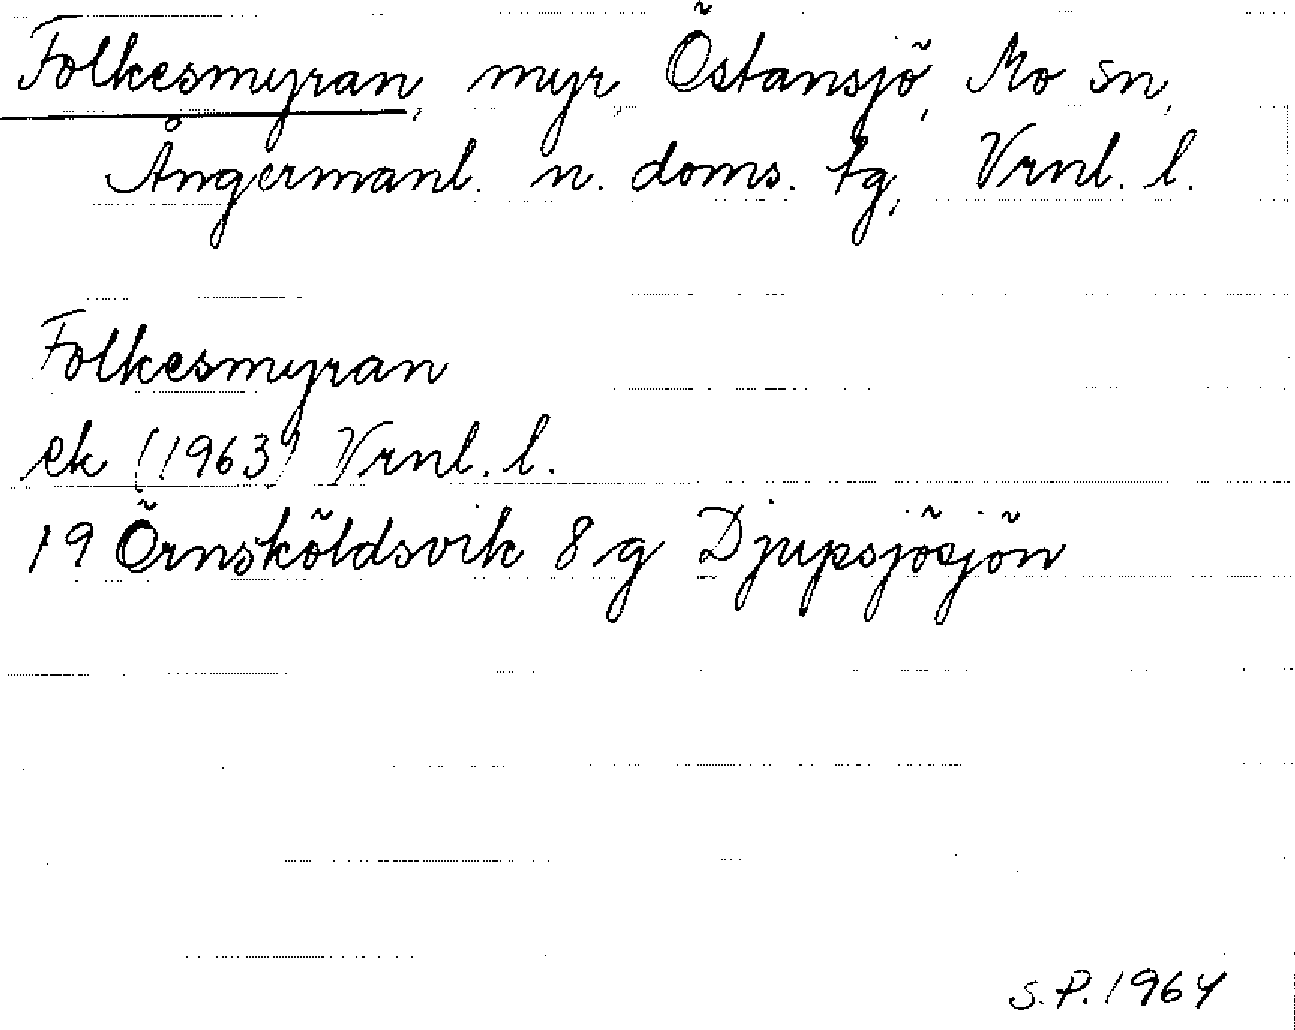 Folkesmyran, myr, Östansjö, Mo sn,
Ångermanl. n. doms. tg, Vrnl. l.
Folkesmyran
ek (1963) Vrnl. l.
19 Örnsköldsvik 8 g Djupsjösjön
S.P. 1964